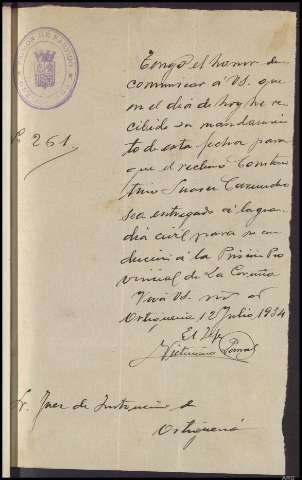 PRISION DE PARTIDO
Nº 261
Tengo el honor de
comunicar a VS. que
en el dia de hoy he re-
cibido su mandamien-
to de esta fecha para
que el recluso Constan-
tino Suarez
sea entregado á la guar-
dia civil para su con-
duccion á la Prision Pro-
vincial de La Coruña
Viva VS. ms. as.
Ortigueira 12 Julio 1934
El Jefe
Victoriano
Sr. Juez de Instruccion de
Ortigueira